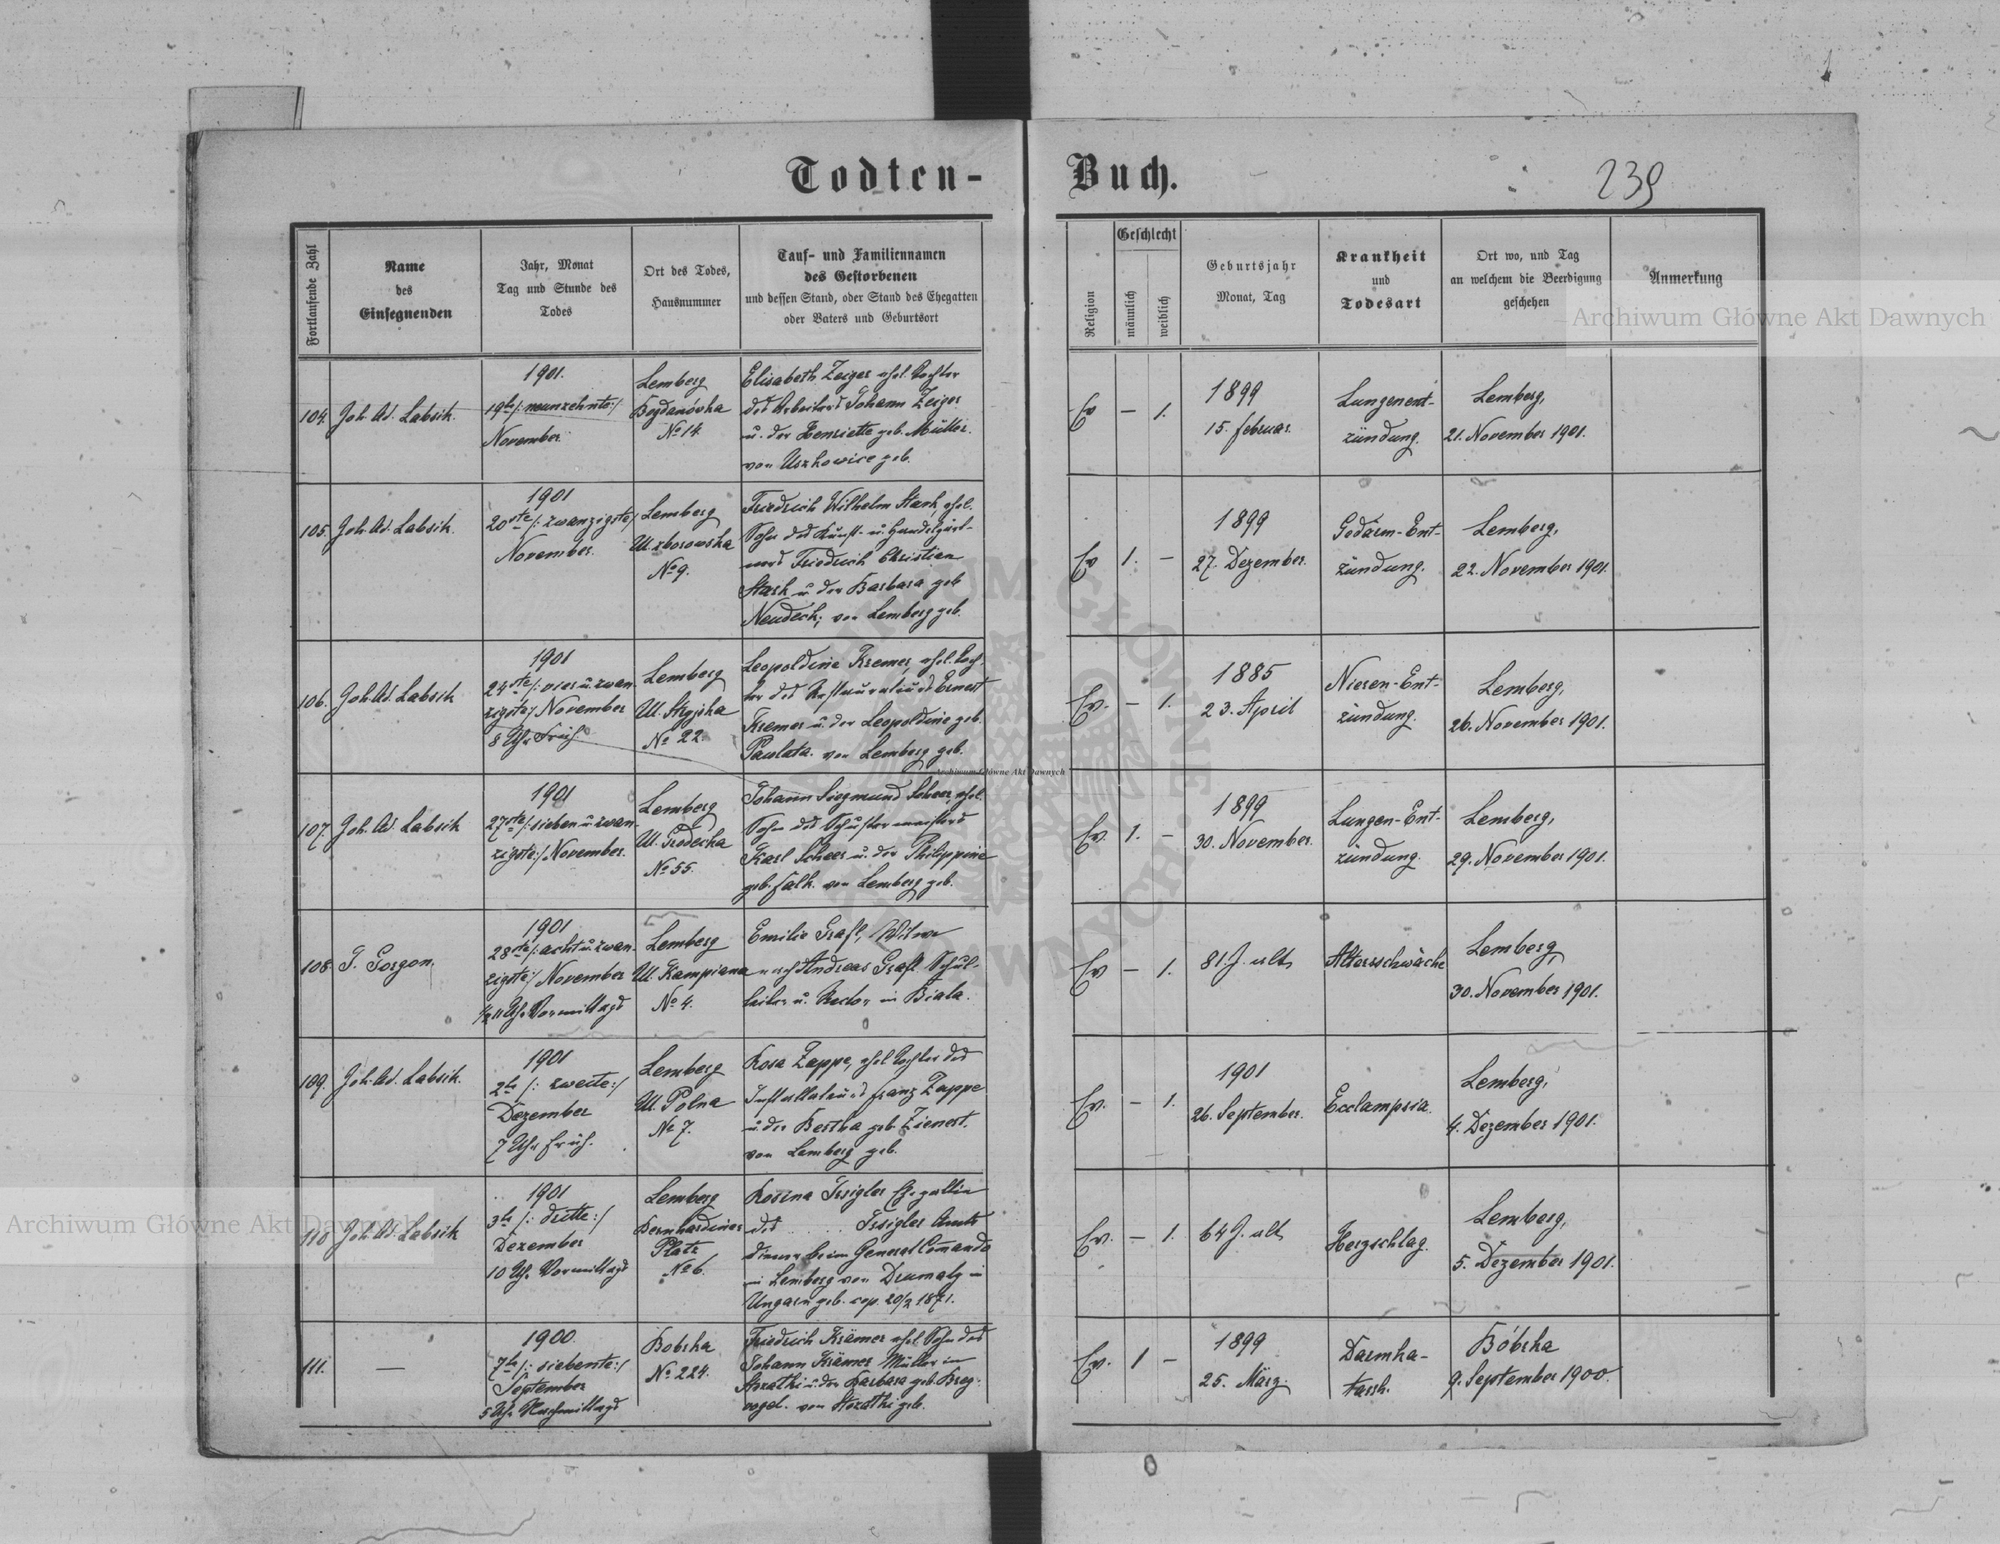 Todten-Buch.
239
Fortlaufende Zahl
Name
des
Einsegnenden
Jahr, Monat
Tag und Stunde des
Todes
Ort des Todes,
Hausnummer
Tauf- und Familiennamen
des Gestorbenen
und dessen Stand, oder Stand des Ehegatten
oder Vaters und Geburtsort
Religion
Geschlecht
männlich
weiblich
Geburtsjahr
Monat, Tag
Krankheit
und
Todesart
Ort wo, und Tag
an welchem die Beerdigung
geschehen
Anmerkung
104.
Joh. Ad. Labsik.
1901.
19te /: neunzehnte :/
November
Lemberg
Bogdanówka
No 14.
Elisabeth Zeiger ehel. Tochter
des Arbeiters Johann Zeiger
u. der Henriette geb. Müller.
von Uszkowice geb.
Ev
–
1.
1899
15. Februar.
Lungenent-
zündung.
Lemberg,
21. November 1901.
105.
Joh. Ad. Labsik.
1901
20ste /: zwanzigste /
November.
Lemberg
No 9.
Friedrich Wilhelm Stark, ehel.
Sohn des Kunst- u. Handelsgärt-
ners Friedrich Christian
Stark u. der Barbara geb
Neudeck, von Lemberg geb.
Ev
1.
–
1899
27. Dezember.
Gedärm-Ent-
zündung.
Lemberg,
22. November 1901.
106.
Joh. Ad. Labsik
1901
24ste /: vier u. zwan-
zigste :/ November
8 Uhr Früh.
Lemberg
Ul. Stryjska
No 22.
Leopoldine Kremer, ehel. Toch-
ter des Restaurateurs Ernest
Kremer u. der Leopoldine geb.
Pawlata. von Lemberg geb.
Ev.
–
1.
1885
23. April
Nieren-Ent-
zündung.
Lemberg,
26. November 1901.
107.
Joh. Ad. Labsik
1901
27ste /: sieben u. zwan-
zigste :/ November.
Lemberg
Ul. Grodecka
No 55.
Johann Siegmund Scheer, ehel.
Sohn des Schustermeisters
Karl Scheer u. der Philippine
geb. Falk. von Lemberg geb.
Ev.
1.
–
1899
30. November.
Lungen-Ent-
zündung.
Lemberg,
29. November 1901.
108.
1901
28ste /: acht u. zwan-
zigste :/ November
1/2 11 Uhr Vormittags
Lemberg
Ul. Kampiana
No 4.
Emilie Grafl, Witwe
nach Andreas Grafl Schul-
leiter u. Rector in Biala.
Ev
–
1.
81 J. alt
Altersschwäche
Lemberg
30. November 1901.
109.
Joh. Ad. Labsik.
1901
2te /: zweite :/
Dezember
7 Uhr früh.
Lemberg
Ul. Polna
No 7.
Rosa Zappe, ehel Tochter des
Installateurs Franz Zappe
u. der Bertha geb. Zienert.
von Lemberg geb.
Ev.
–
1.
1901
26. September.
Ecclampsia.
Lemberg,
4. Dezember 1901.
110
Joh. Ad. Labsik
1901
3te /: dritte :/
Dezember
10 Uhr Vormittags
Lemberg
Bernhardiner
Platz
No 6.
Rosina Issigler Ehegattin
des . . . . Issigler Amts
dieners beim General Comando
in Lemberg von in
Ungarn geb. cop. 20/2 1871.
Ev.
–
1.
64 J. alt
Herzschlag.
Lemberg,
5. Dezember 1901.
111.
—
1900
7te /: siebente :/
September
5 Uhr Nachmittags
Bobrka
No 224.
Friedrich Krämer ehel. Sohn des
Johann Krämer Müller in
u. der Barbara geb.
geb.
Ev.
1
–
1899
25. März.
Darmka-
tarrh.
Bóbrka
9. September 1900.
Archiwum Główne Akt Dawnych
Archiwum Główne Akt Dawnych
Archiwum Główne Akt Dawnych